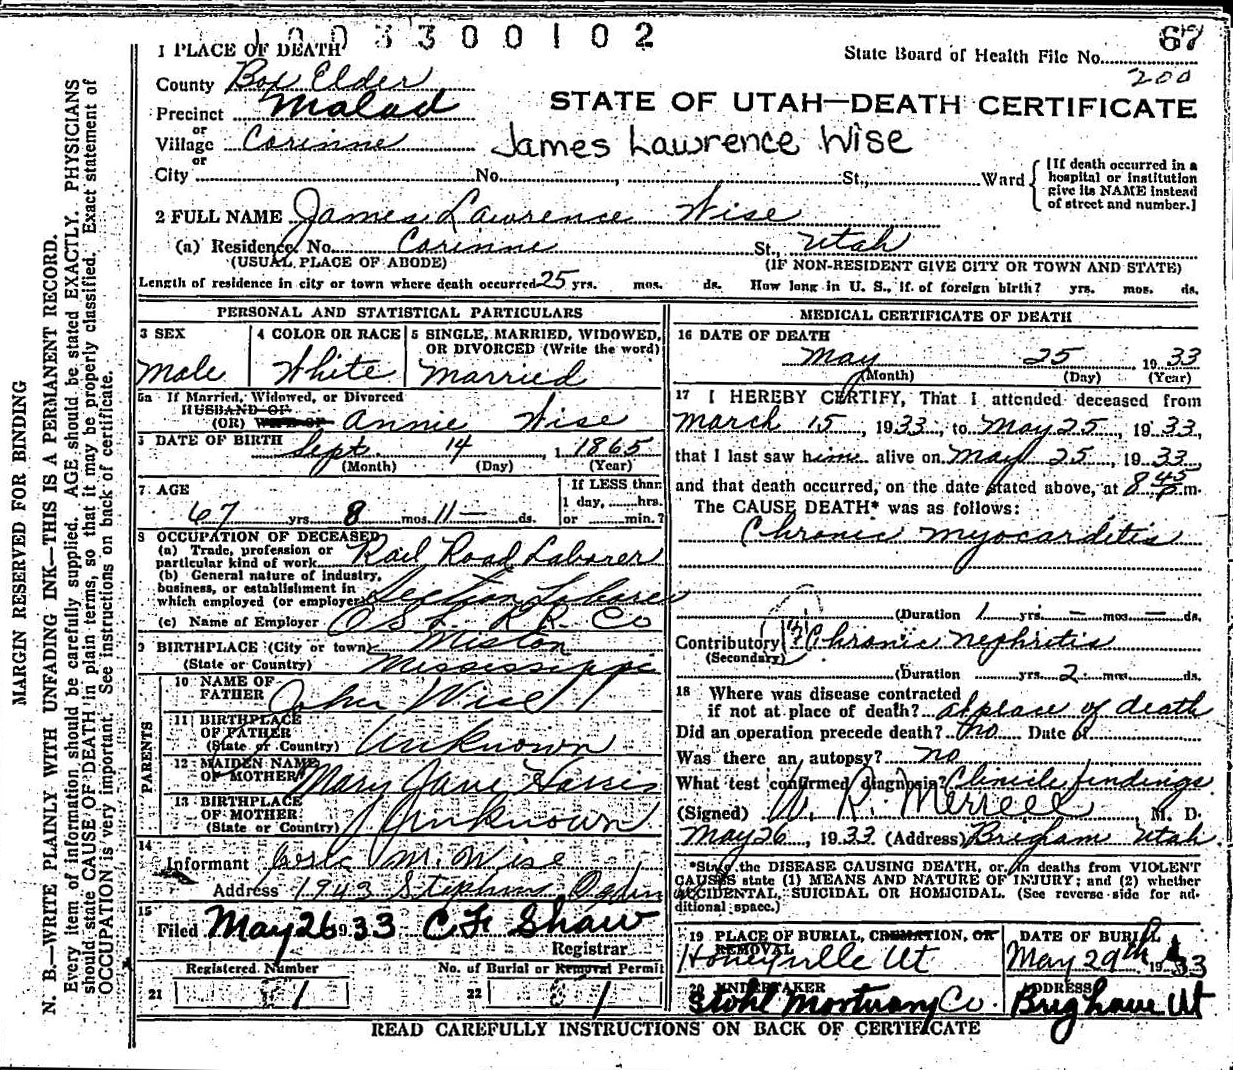 1003300102
67
1 PLACE OF DEATH
State Board of Health File No.
200
County Box Elder
Precinct Malad
STATE OF UTAH—DEATH CERTIFICATE
or
Village Corinne
James Lawrence Wise
or
City No. , St., Ward
[If death occurred in a hospital or institution give its NAME instead of street and number.]
2 FULL NAME James Lawrence Wise
(a) Residence, No. Corinne St., Utah
(USUAL PLACE OF ABODE) (IF NON-RESIDENT GIVE CITY OR TOWN AND STATE)
Length of residence in city or town where death occurred 25 yrs. mos. ds. How long in U. S., if of foreign birth? yrs. mos. ds.
PERSONAL AND STATISTICAL PARTICULARS
3 SEX
Male
4 COLOR OR RACE
White
5 SINGLE, MARRIED, WIDOWED, OR DIVORCED (Write the word)
Married
5a If Married, Widowed, or Divorced
HUSBAND OF
(OR) WIFE OF Annie Wise
6 DATE OF BIRTH
Sept. 14, 1 1865
(Month) (Day) (Year)
7 AGE
67 yrs. 8 mos. 11 ds.
If LESS than
1 day, hrs.
or min.?
8 OCCUPATION OF DECEASED
(a) Trade, profession or
particular kind of work Rail Road Laborer
(b) General nature of industry,
business, or establishment in
which employed (or employer) Section Laborer
(c) Name of Employer O S L R.R. Co
9 BIRTHPLACE (City or town) Miston
(State or Country) Mississippi
PARENTS
10 NAME OF
FATHER John Wise
11 BIRTHPLACE
OF FATHER
(State or Country) Unknown
12 MAIDEN NAME
OF MOTHER Mary Jane Harris
13 BIRTHPLACE
OF MOTHER
(State or Country) Unknown
14
Informant M. Wise
Address 1943 Stephens Ogden
15
Filed May 26 1933 C F Shaw
Registrar
Registered Number
No. of Burial or Removal Permit
21 1
22 1
MEDICAL CERTIFICATE OF DEATH
16 DATE OF DEATH
May 25, 1933
(Month) (Day) (Year)
17 I HEREBY CERTIFY, That I attended deceased from
March 15, 1933, to May 25, 1933,
that I last saw him alive on May 25, 1933,
and that death occurred, on the date stated above, at 8 45 P.m.
The CAUSE DEATH* was as follows:
Chronic myocarditis
(Duration 1 yrs. — mos. — ds.
Contributory Chronic nephritis
(Secondary)
(Duration yrs. 2 mos. ds.
18 Where was disease contracted
if not at place of death? at place of death
Did an operation precede death? no Date of
Was there an autopsy? no
What test confirmed diagnosis? Clinicle findings
(Signed) W. R. Merrell, M. D.
May 26, 1933 (Address) Brigham Utah
*State the DISEASE CAUSING DEATH, or, in deaths from VIOLENT
CAUSES state (1) MEANS AND NATURE OF INJURY; and (2) whether
ACCIDENTAL, SUICIDAL OR HOMICIDAL. (See reverse side for ad-
ditional space.)
19 PLACE OF BURIAL, CREMATION, OR
REMOVAL
Honeyville Ut
DATE OF BURIAL
May 29th 1933
20 UNDERTAKER
Stohl Mortuary Co.
ADDRESS
Brigham Ut
READ CAREFULLY INSTRUCTIONS ON BACK OF CERTIFICATE
MARGIN RESERVED FOR BINDING
N. B.—WRITE PLAINLY WITH UNFADING INK—THIS IS A PERMANENT RECORD.
Every item of information should be carefully supplied. AGE should be stated EXACTLY. PHYSICIANS
should state CAUSE OF DEATH in plain terms, so that it may be properly classified. Exact statement of
OCCUPATION is very important. See instructions on back of certificate.